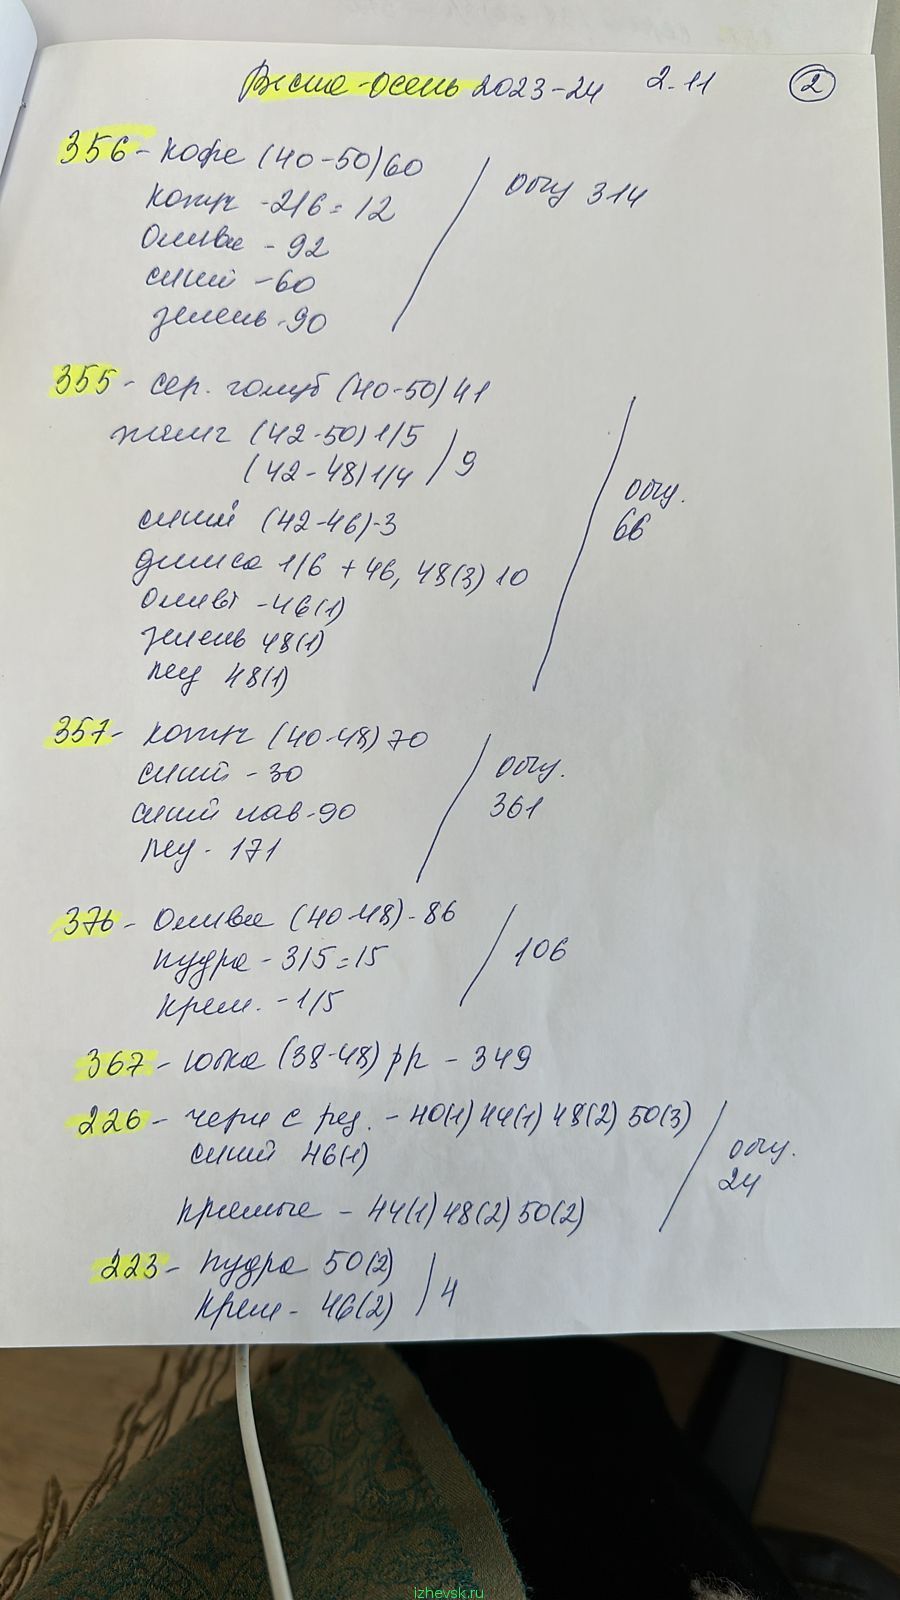 Весна-осень 2023-24 2.11 2
356- кофе (40-50)60
-2/6=12
Олива - 92
синий -60
зелень -90
общ 314
355- сер. голуб (40-50)41
(42-50)1/5
(42-48)1/4 9
синий (42-46)-3
джинса 1/6 +46, 48(3) 10
оливк -46(1)
зелень 48(1)
48(1)
общ.
66
357- (40-48)70
синий -30
синий лав-90
- 171
общ.
361
376- Олива (40-48)-86
пудра - 3/5=15
крем. -1/5
106
367- юбка (38-48)рр - 349
226- черн с рез. - 40(1) 44(1) 48(2) 50(3)
синий 46(1)
прямые - 44(1) 48(2) 50(2)
общ.
24
223- пудра 50(2)
крем - 46(2) 4
izhevsk.ru